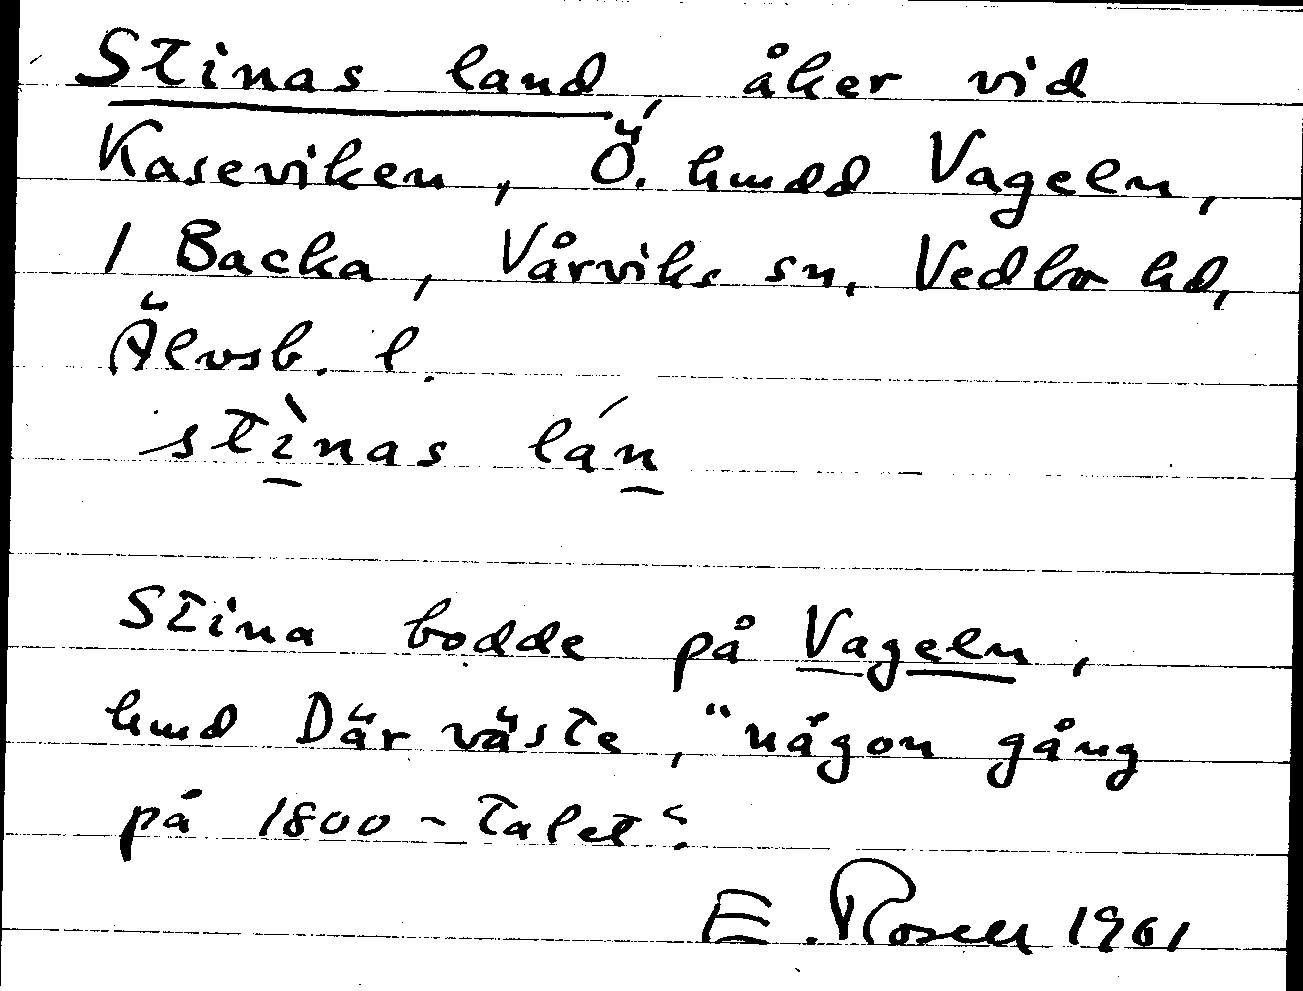 Stinas land, åker vid
Kaseviken, Ö. hmdd Vageln,
1 Backa, Vårviks sn, Vedbo hd,
Älvsb. l.
stìnas lán
Stina bodde på Vageln,
hmd Där väste, "någon gång
på 1800-talet".
E. Rosell 1961